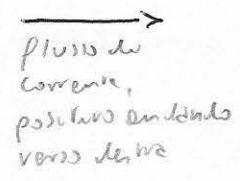 flusso di
corrente,
positivo andando
verso destra